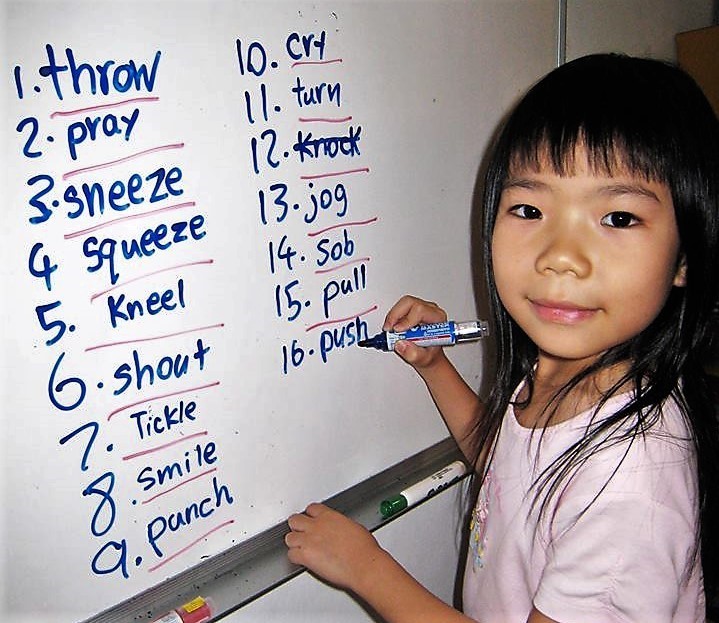 1. throw
2. pray
3. sneeze
4 squeeze
5. Kneel
6. shout
7. Tickle
8. smile
9. punch
10. cry
11. turn
12. Knock
13. jog
14. sob
15. pull
16. push